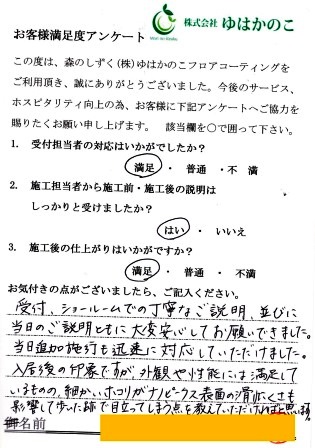 株式会社 ゆはかのこ
お客様満足度アンケート
この度は、森のしずく(株)ゆはかのこフロアコーティングを
ご利用頂き、誠にありがとうございました。今後のサービス、
ホスピタリティ向上の為、お客様に下記アンケートへご協力を
賜りたくお願い申し上げます。 該当欄を○で囲って下さい。
1. 受付担当者の対応はいかがでしたか?
満足 ・ 普通 ・不 満
2. 施工担当者から施工前・施工後の説明は
しっかりと受けましたか?
はい ・ いいえ
3. 施工後の仕上がりはいかがですか?
満足 ・ 普通 ・ 不満
お気付きの点がございましたら、ご記入ください。
受付、ショールームでの丁寧なご説明、並びに
当日のご説明ともに大変安心してお願いできました。
当日追加施行も迅速に対応していただけました。
入居後の印象ですが、外観や性能には満足して
いるものの、細かいホコリがナノピークス表面の滑りにくさも
影響して歩いた跡で目立ってしまう点を教えていただいれればと思います
御名前